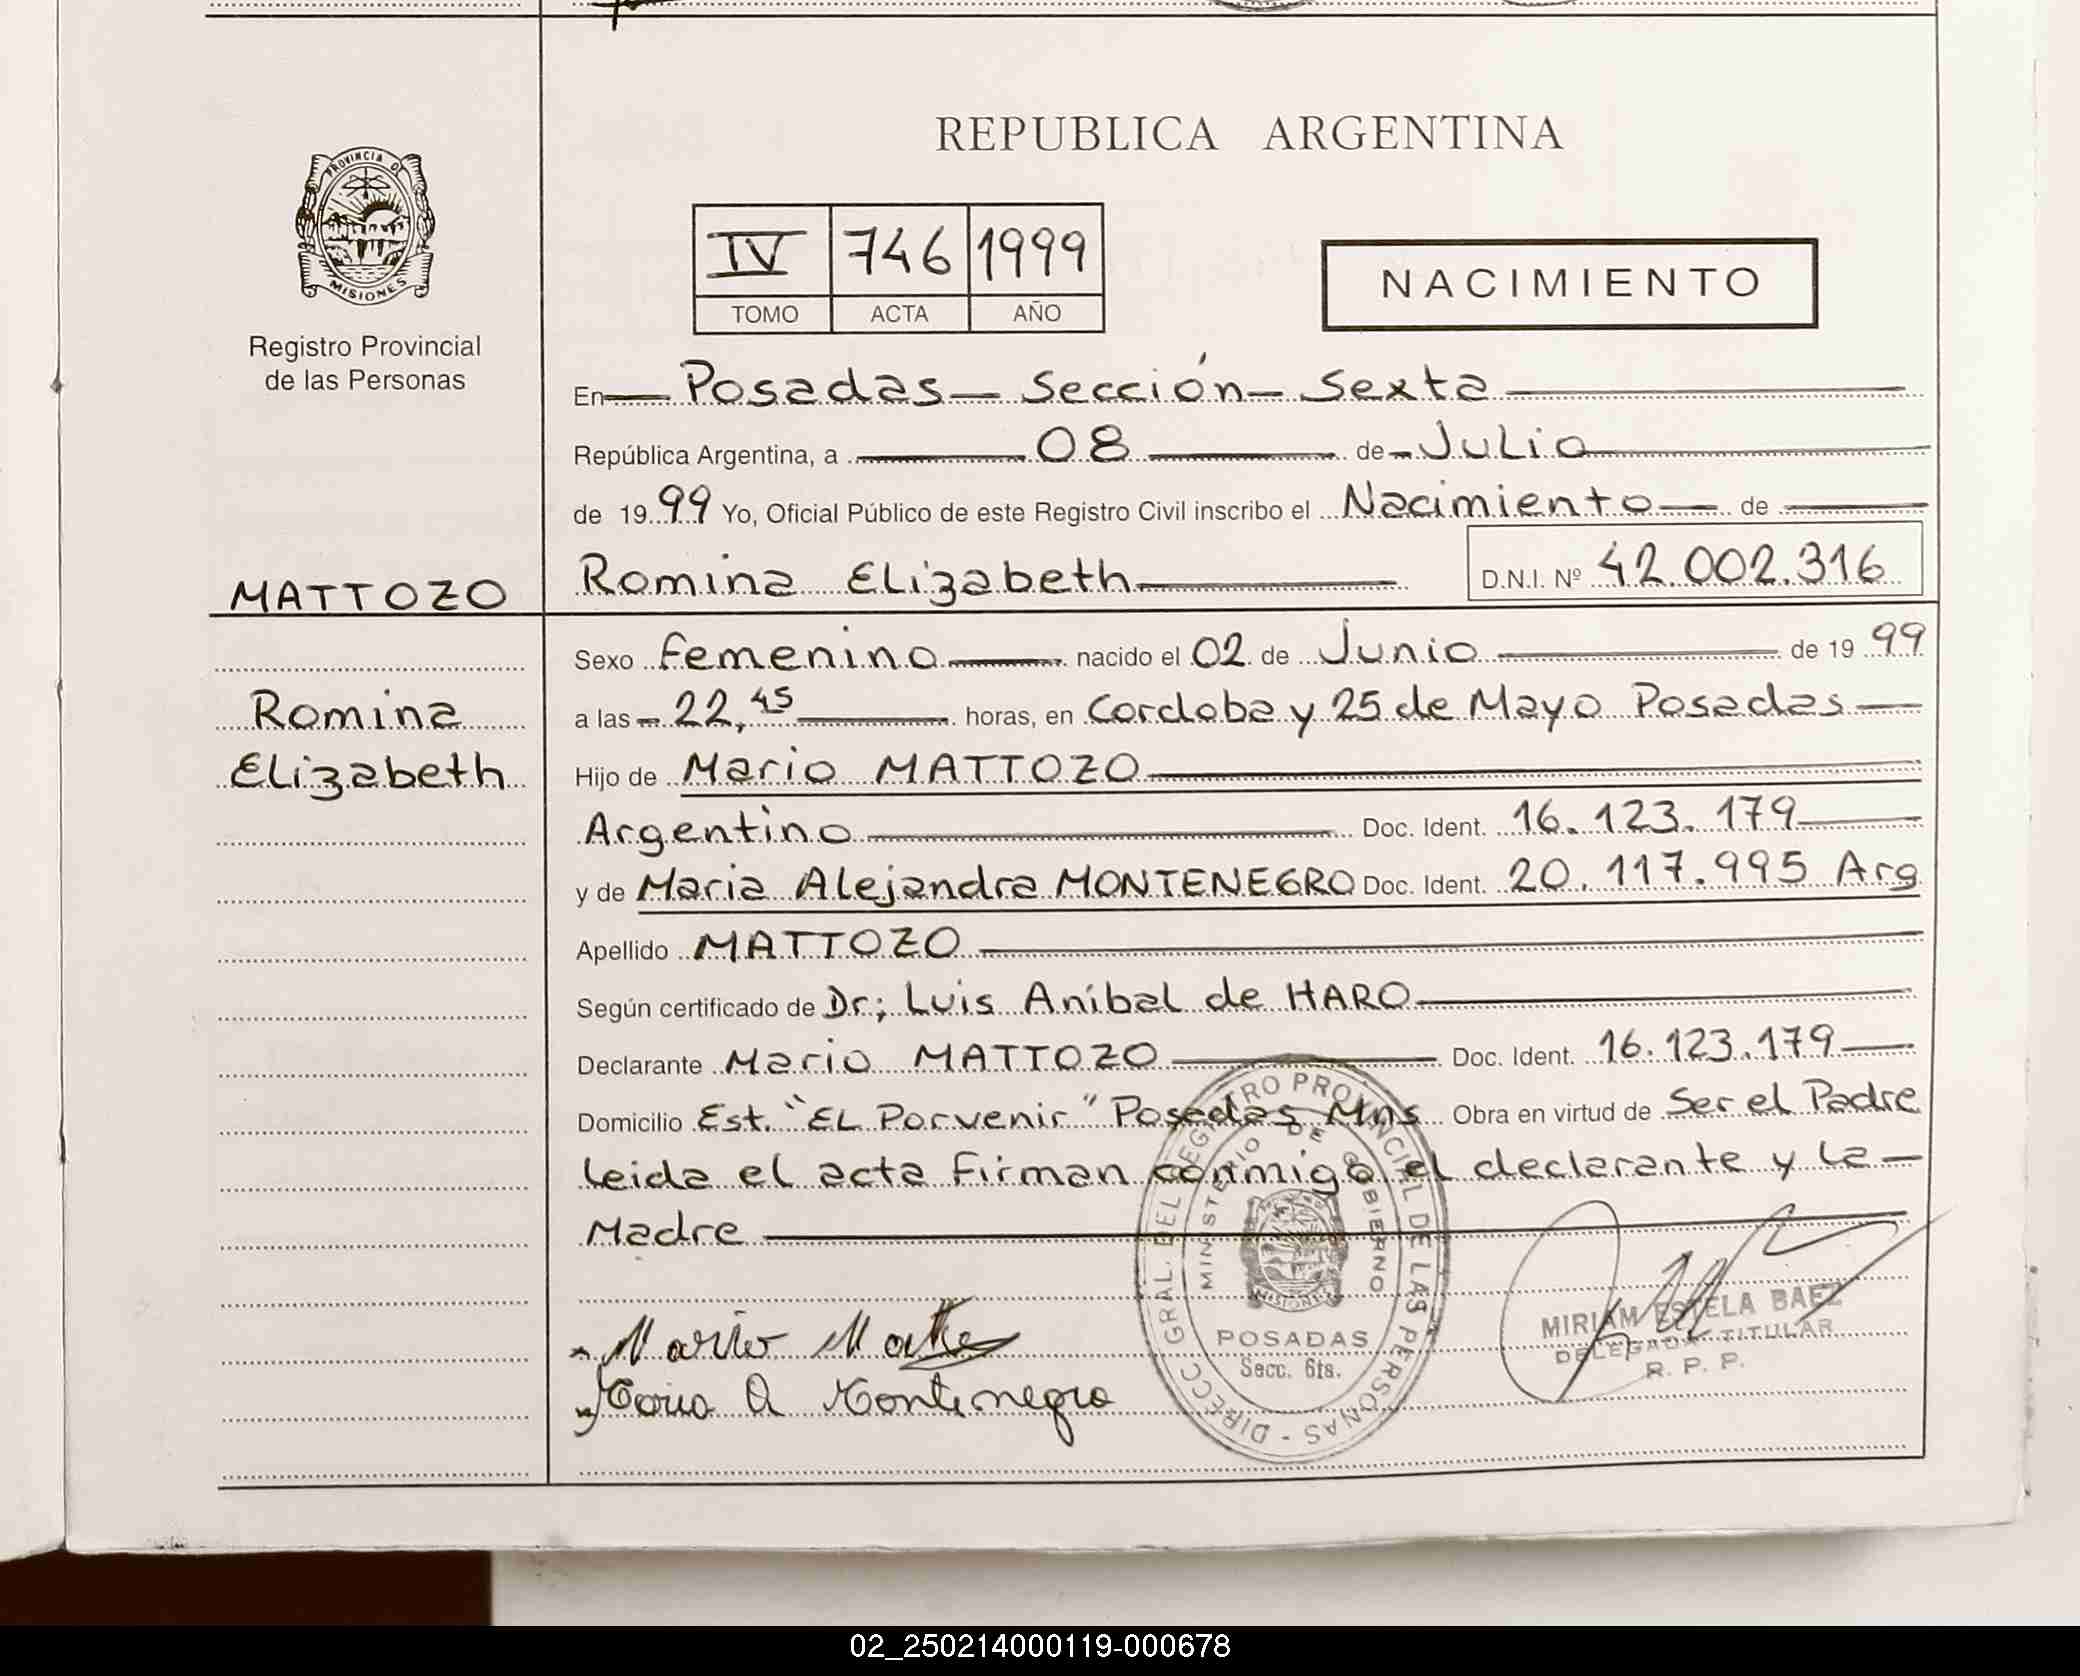 REPUBLICA ARGENTINA
PROVINCIA D
MISIONES
Registro Provincial
de las Personas
IV 746 1999
TOMO ACTA AÑO
NACIMIENTO
En Posadas - Sección - Sexta
República Argentina, a 08 de Julio
de 1999 Yo, Oficial Público de este Registro Civil inscribo el Nacimiento de
MATTOZO
Romina Elizabeth D.N.I. Nº 42.002.316
Romina
Elizabeth
Sexo Femenino nacido el 02 de Junio de 19 99
a las 22,45 horas, en Cordoba y 25 de Mayo Posadas
Hijo de Mario MATTOZO
Argentino Doc. Ident. 16.123.179
y de Maria Alejandra MONTENEGRO Doc. Ident. 20.117.995 Arg
Apellido MATTOZO
Según certificado de Dr; Luis Aníbal de HARO
Declarante Mario MATTOZO Doc. Ident. 16.123.179
Domicilio Est. "EL Porvenir" Posadas Mns Obra en virtud de Ser el Padre
leida el acta Firman conmigo el declarante y la
Madre
Mario Matto
Maria A Montenegro
DIRECC GRAL. DEL REGISTRO PROVINCIAL DE LAS PERSONAS -
MINISTERIO DE GOBIERNO
MISIONES
POSADAS
Secc. 6ta.
MIRIAM ESTELA BAEZ
DELEGADA TITULAR
R. P. P.
02_250214000119-000678